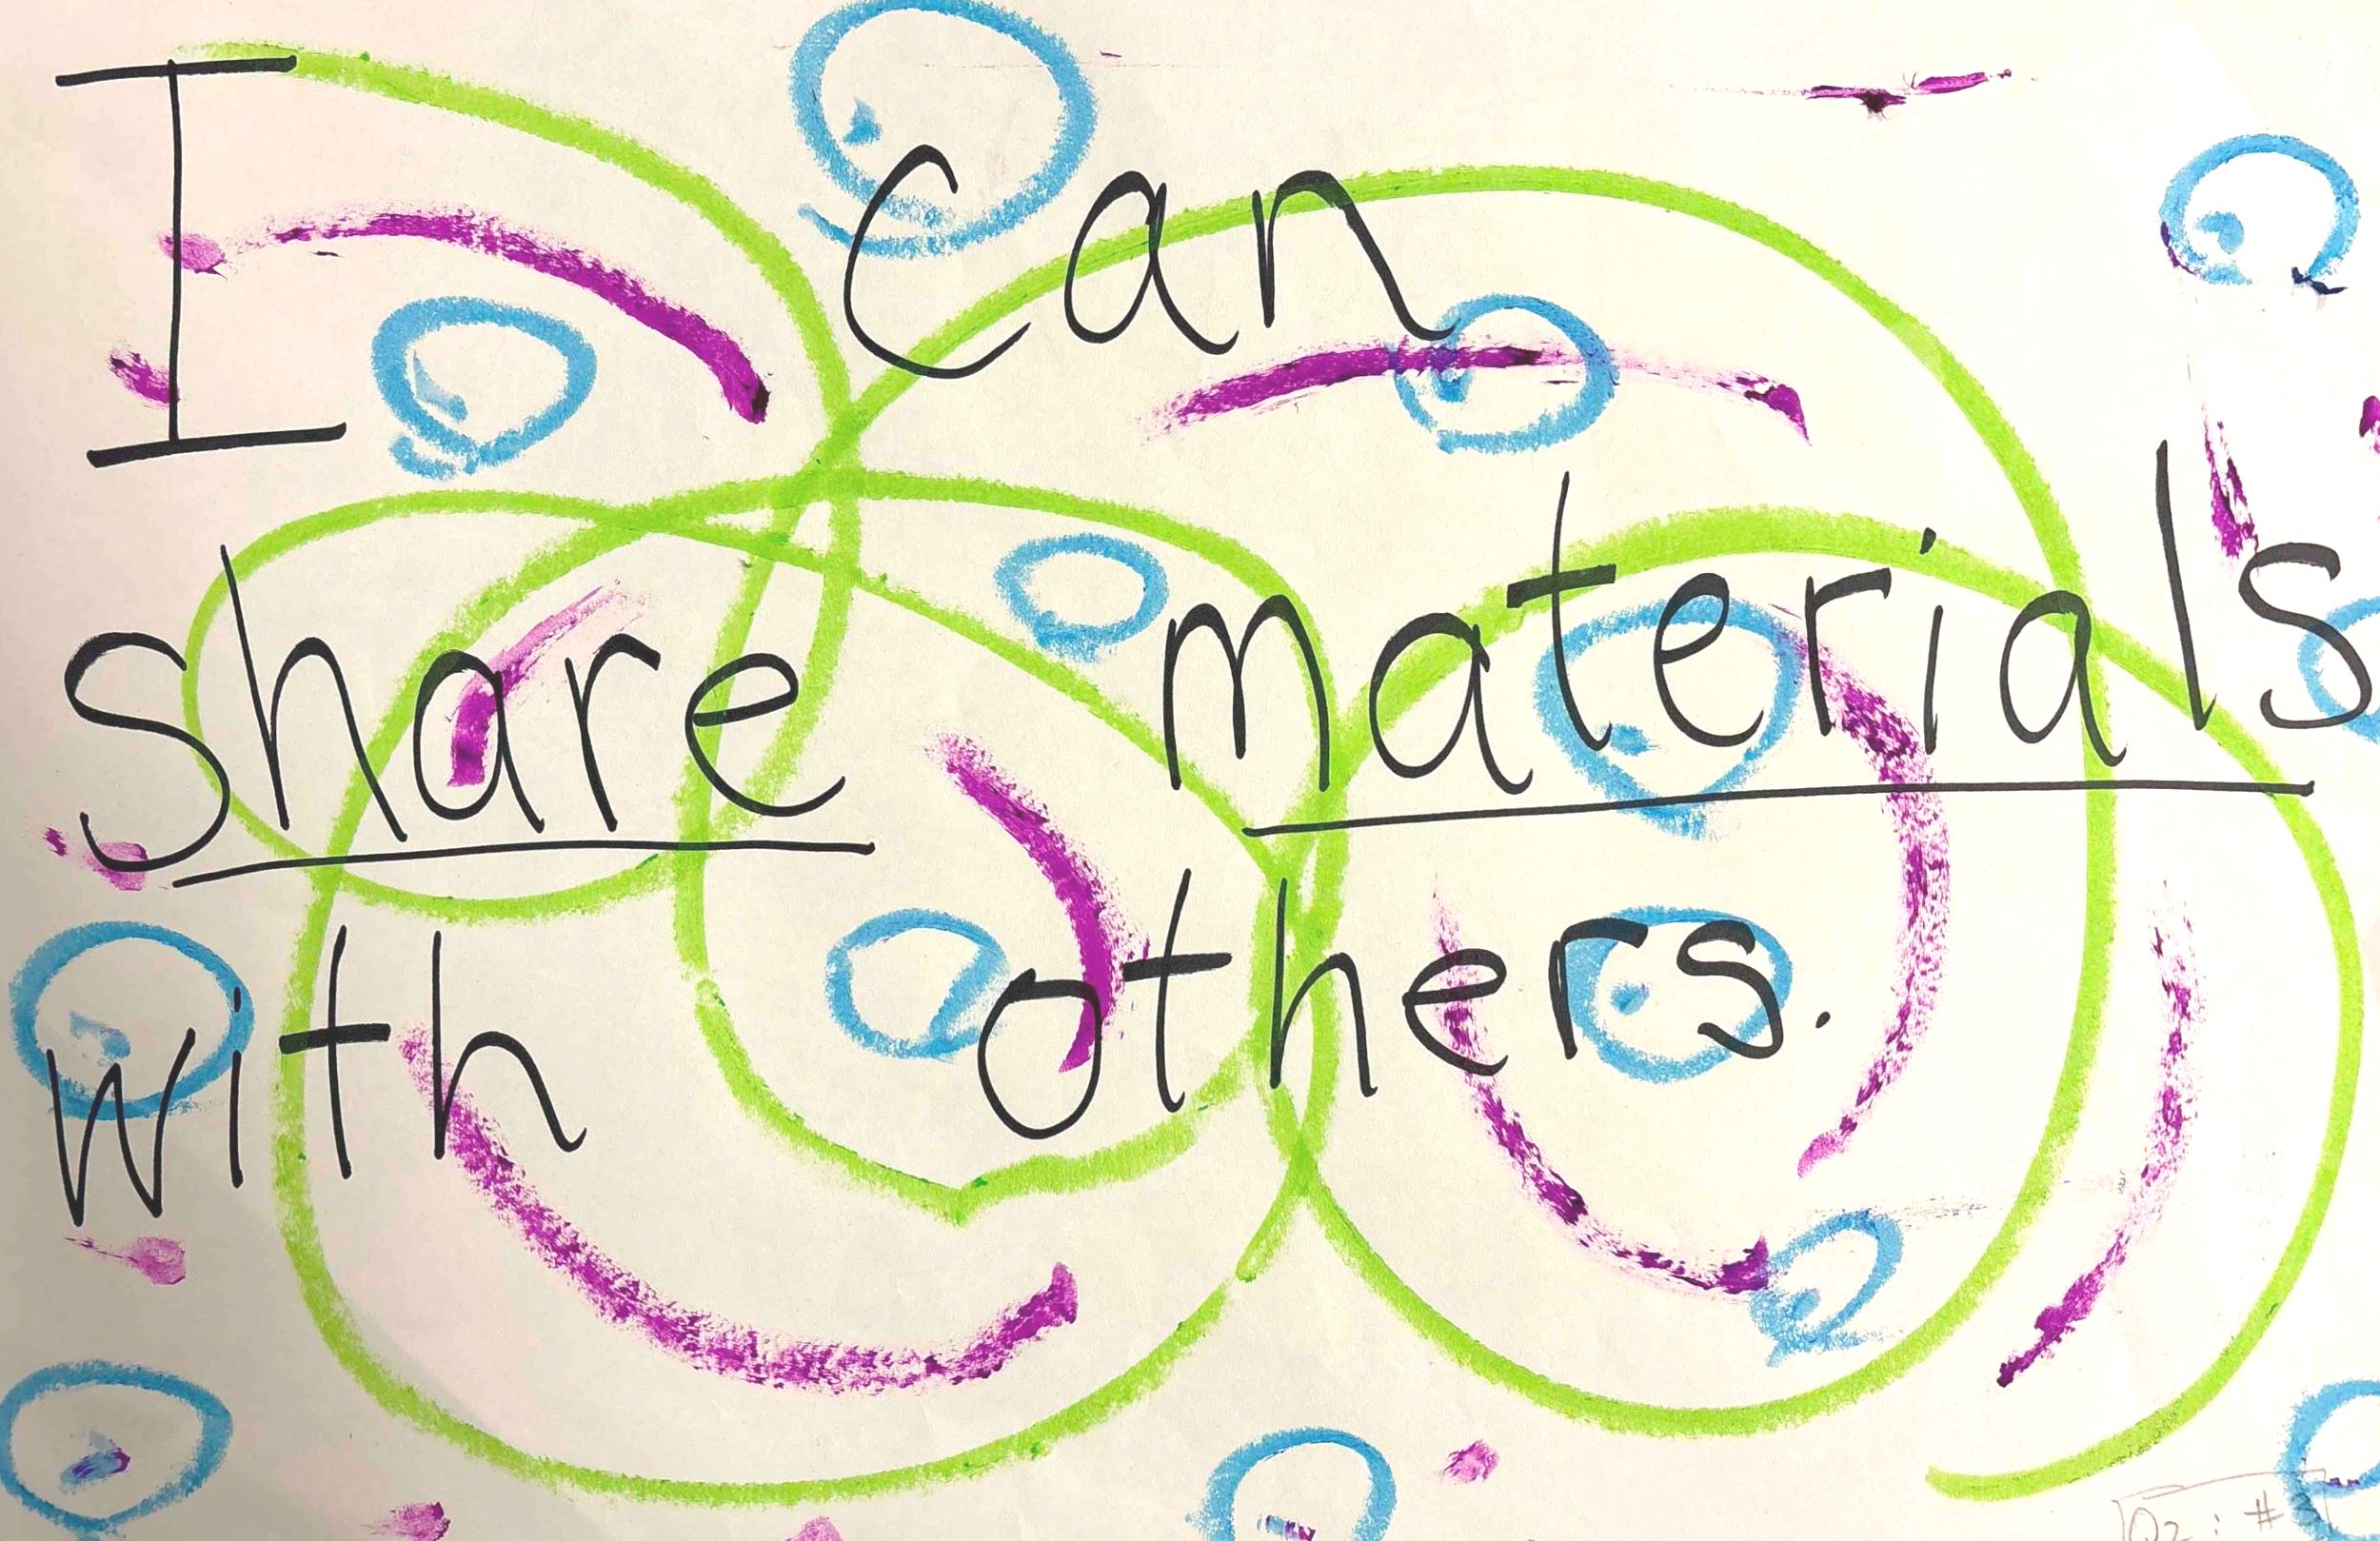 I can
share materials
with others.
Q2: #3